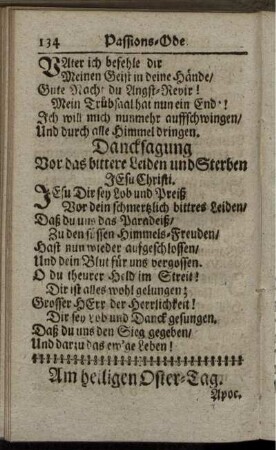 134 Passions-Ode
VAter ich befehle dir
Meinen Geist in deine Hände/
Gute Nacht du Angst-Revir!
Mein Trübsaal hat nun ein End'!
Ich will mich nunmehr auffschwingen/
Und durch alle Himmel dringen.
Dancksagung
Vor das bittere Leiden und Sterben
JEsu Christi.
JEsu Dir sey Lob und Preiß
Vor dein schmertzlich bittres Leiden/
Daß du uns das Paradeiß/
Zu den süssen Himmels-Freuden/
Hast nun wieder aufgeschlossen/
Und dein Blut für uns vergossen.
O du theurer Held im Streit!
Dir ist alles wohl gelungen;
Grosser HErr der Herrlichkeit!
Dir sey Lob und Danck gesungen.
Daß du uns den Sieg gegeben/
Und darzu das ew'ge Leben!
Am heiligen Oster-Tag.
Apoc.